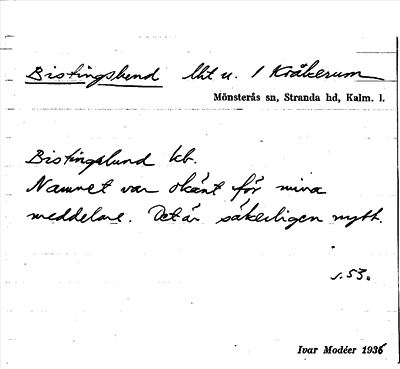 Bistingslund lht u. 1 Kråkerum
Mönsterås sn, Stranda hd, Kalm. l.
Bistingslund kb.
Namnet var okänt för mina
meddelare. Det är säkerligen nytt.
s. 53.
Ivar Modéer 1936